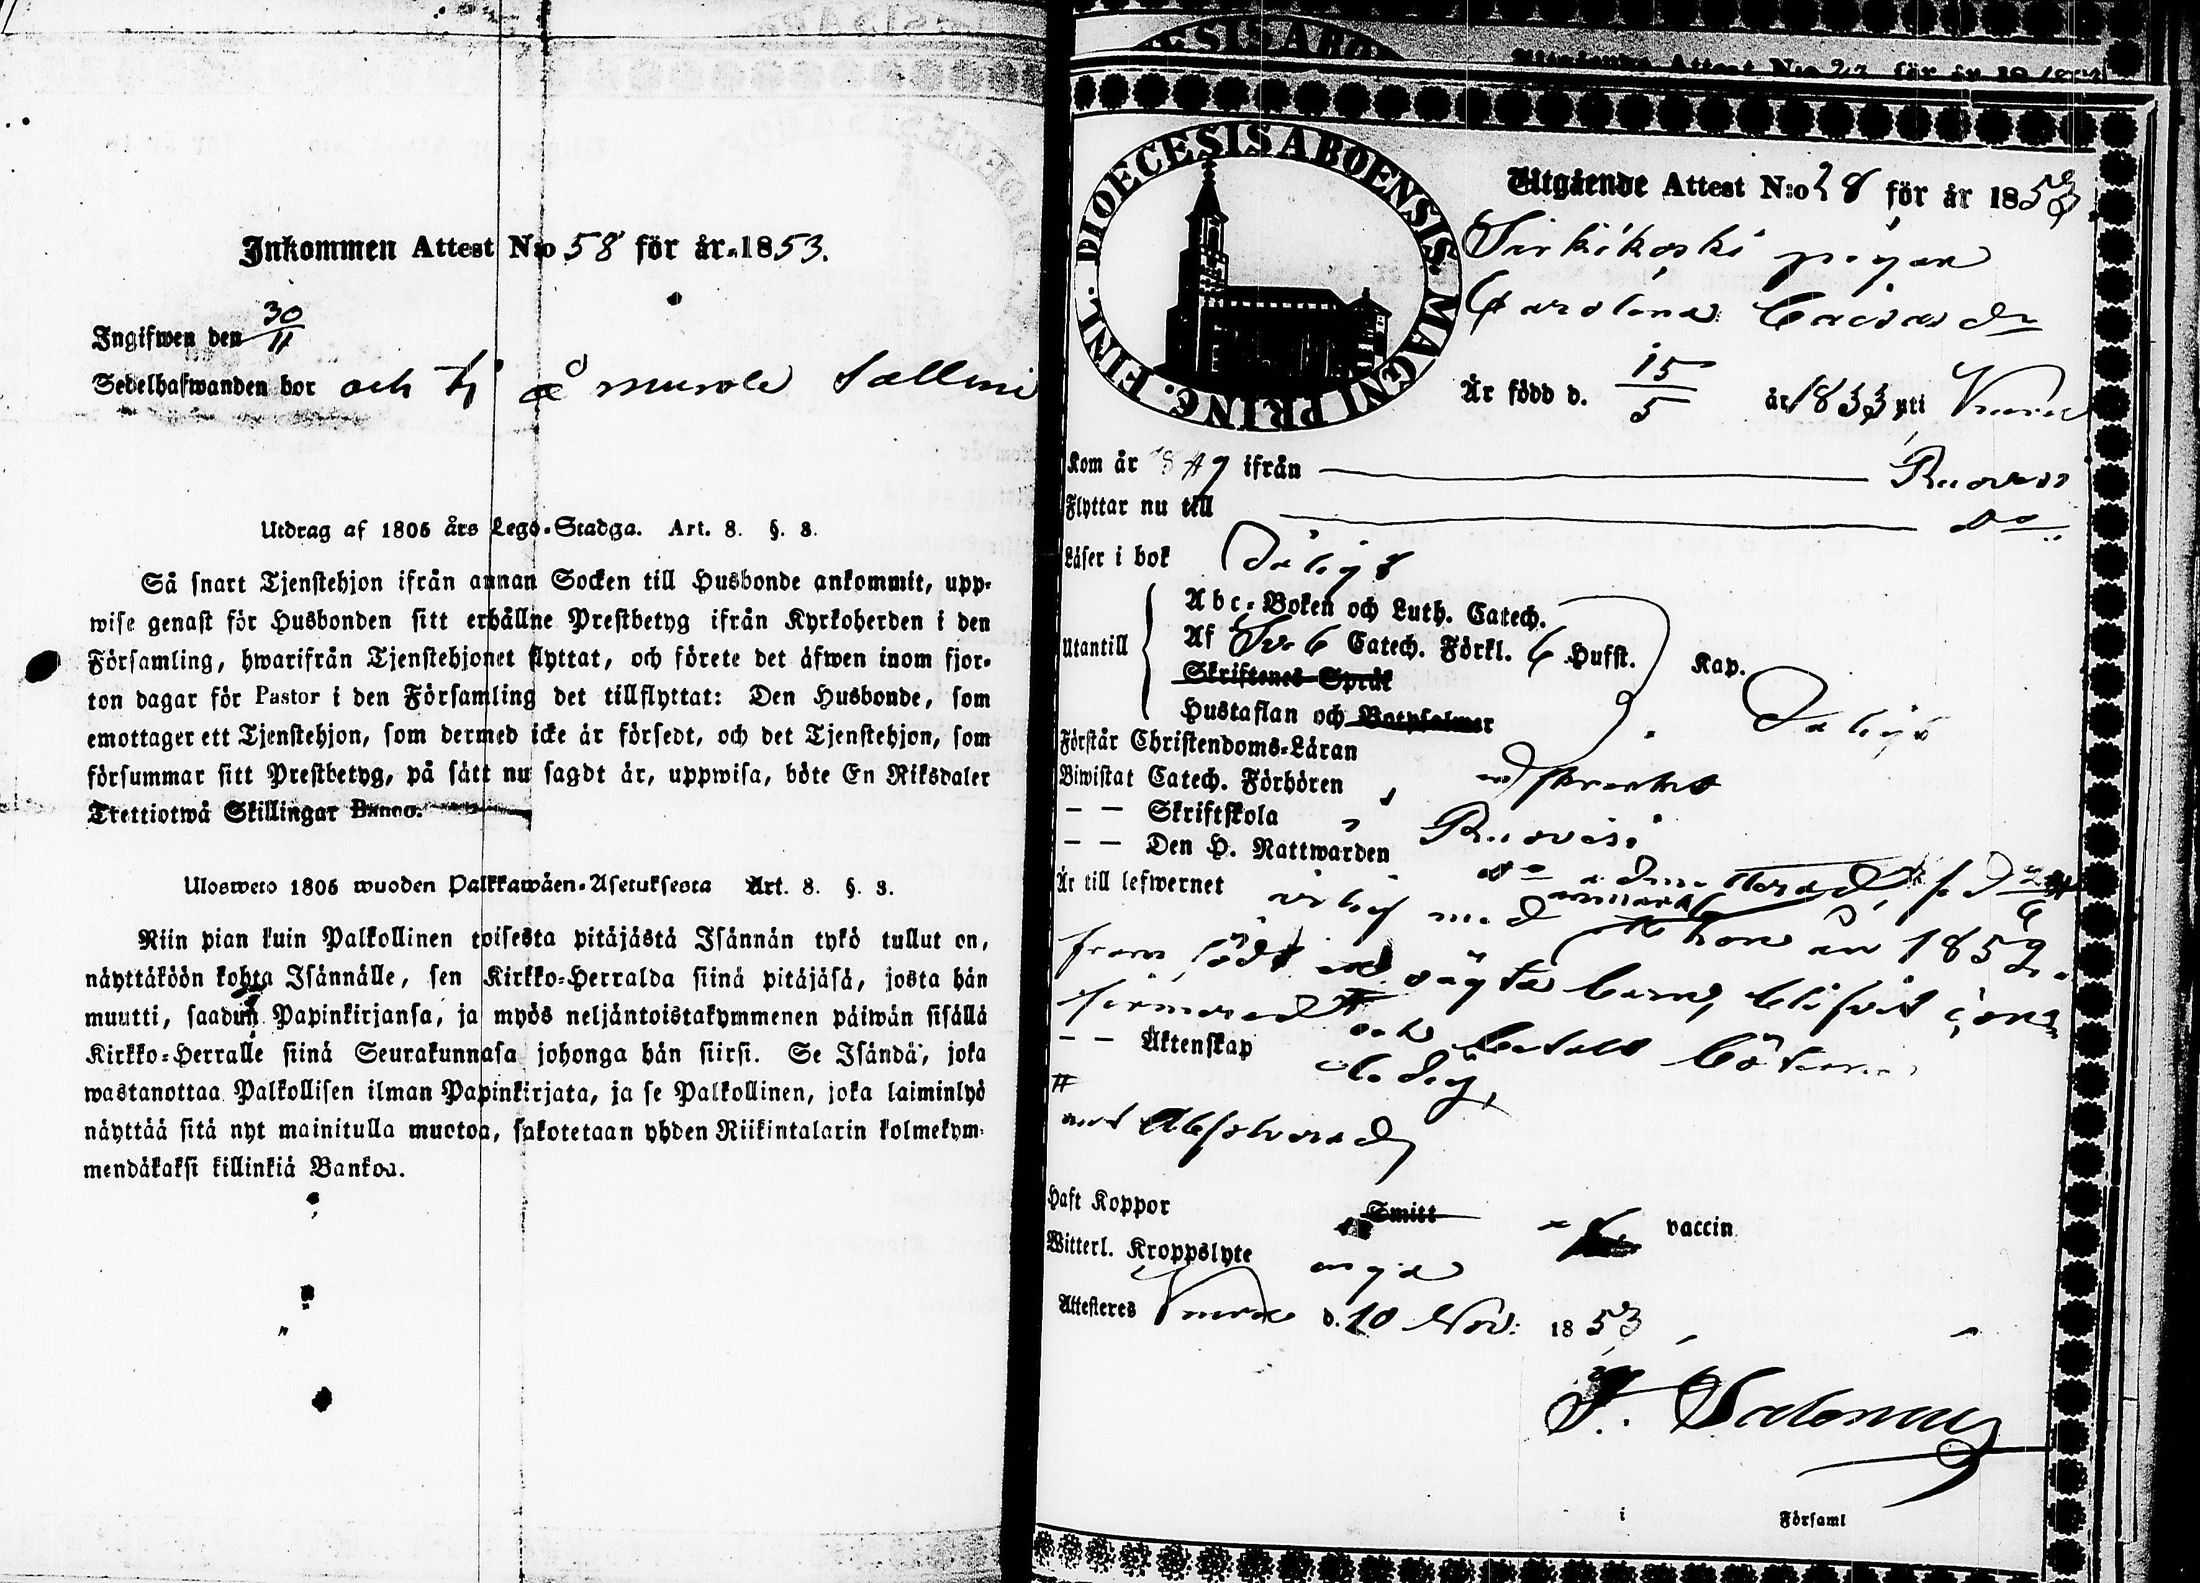 Inkommen Attest N:o 58 för år 1853.
Ingifwen den 30/11
Sedelhafwanden bor och å Murole
Utdrag af 1805 års Lego-Stadga. Art. 8. §. 3.
Så snart Tjenstehjon ifrån annan Socken till Husbonde ankommit, upp-
wise genast för Husbonden sitt erhållne Prestbetyg ifrån Kyrkoherden i den
Församling, hwarifrån Tjenstehjonet flyttat, och förete det äfwen inom fjor-
ton dagar för Pastor i den Församling det tillflyttat: Den Husbonde, som
emottager ett Tjenstehjon, som dermed icke är försedt, och det Tjenstehjon, som
försummar sitt Prestbetyg, på sätt nu sagdt är, uppwisa, böte En Riksdaler
Trettiotwå Skillingar Banco.
Ulosweto 1805 wuoden Palkkawäen-Asetuksesta Art. 8. §. 3.
Niin pian kuin Palkollinen toisesta pitäjästä Isännän tykö tullut on,
näyttäköön kohta Isännälle, sen Kirkko-Herralda siinä pitäjäsä, josta hän
muutti, saadun Papinkirjansa, ja myös neljäntoistakymmenen päiwän sisällä
Kirkko-Herralle siinä Seurakunnasa johonga hän siirsi. Se Isändä, joka
wastanottaa Palkollisen ilman Papinkirjata, ja se Palkollinen, joka laiminlyö
näyttää sitä nyt mainitulla muotoa, sakotetaan yhden Riikintalarin kolmekym-
mendäkaksi killinkiä Bankoa.
DIOECESIS ABOENSIS. MAGNI PRINC. FINL.
Utgående Attest N:o 28 för år 1853.
Sirkikoski pigan
Carolina Caisasdr
Är född d. 15/5 år 1833 uti
Kom år 1849 ifrån Ruovesi
Flyttar nu till Do
Läser i bok Dåligt
Utantill
Abc-Boken och Luth. Catech.
Af Sv 6 Catech. Förkl. 6 Husst. Kap.
Skriftenes Språk
Hustaflan och Botpsalmer Dåligt
Förstår Christendoms-Läran
Biwistat Catech. Förhören
— — Skriftskola Ruovesi
— — Den H. Nattwarden
Är till lefwernet ärlig med
1852.
fram födt oägta barn, blifvit
och betalt böterna
— — Äktenskap ledig,
# Absolverad
Haft Koppor Smitt vaccin
Witterl. Kroppslyte inga
Attesteres d. 10 Nov: 1853
i Församl